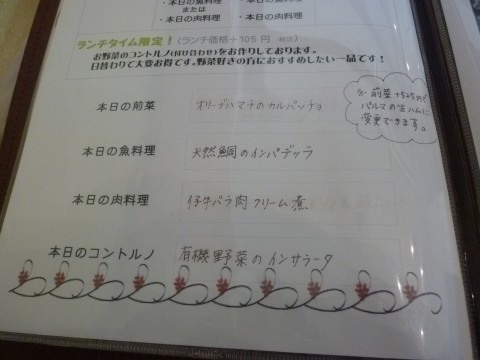 ・本日の魚料理
または
・本日の肉料理
・本日の肉料理
ランチタイム限定！（ランチ価格＋105円 税込）
お野菜のコントルノ(付け合わせ)をお作りしております。
日替わりで大変お得です。野菜好きの方におすすめしたい一品です！
本日の前菜 オリーブハマチのカルパッチョ
前菜＋525円で
パルマの生ハムに
変更できます。
本日の魚料理 天然鯛のインパデッラ
本日の肉料理 仔牛バラ肉クリーム煮
本日のコントルノ 有機野菜のインサラータ